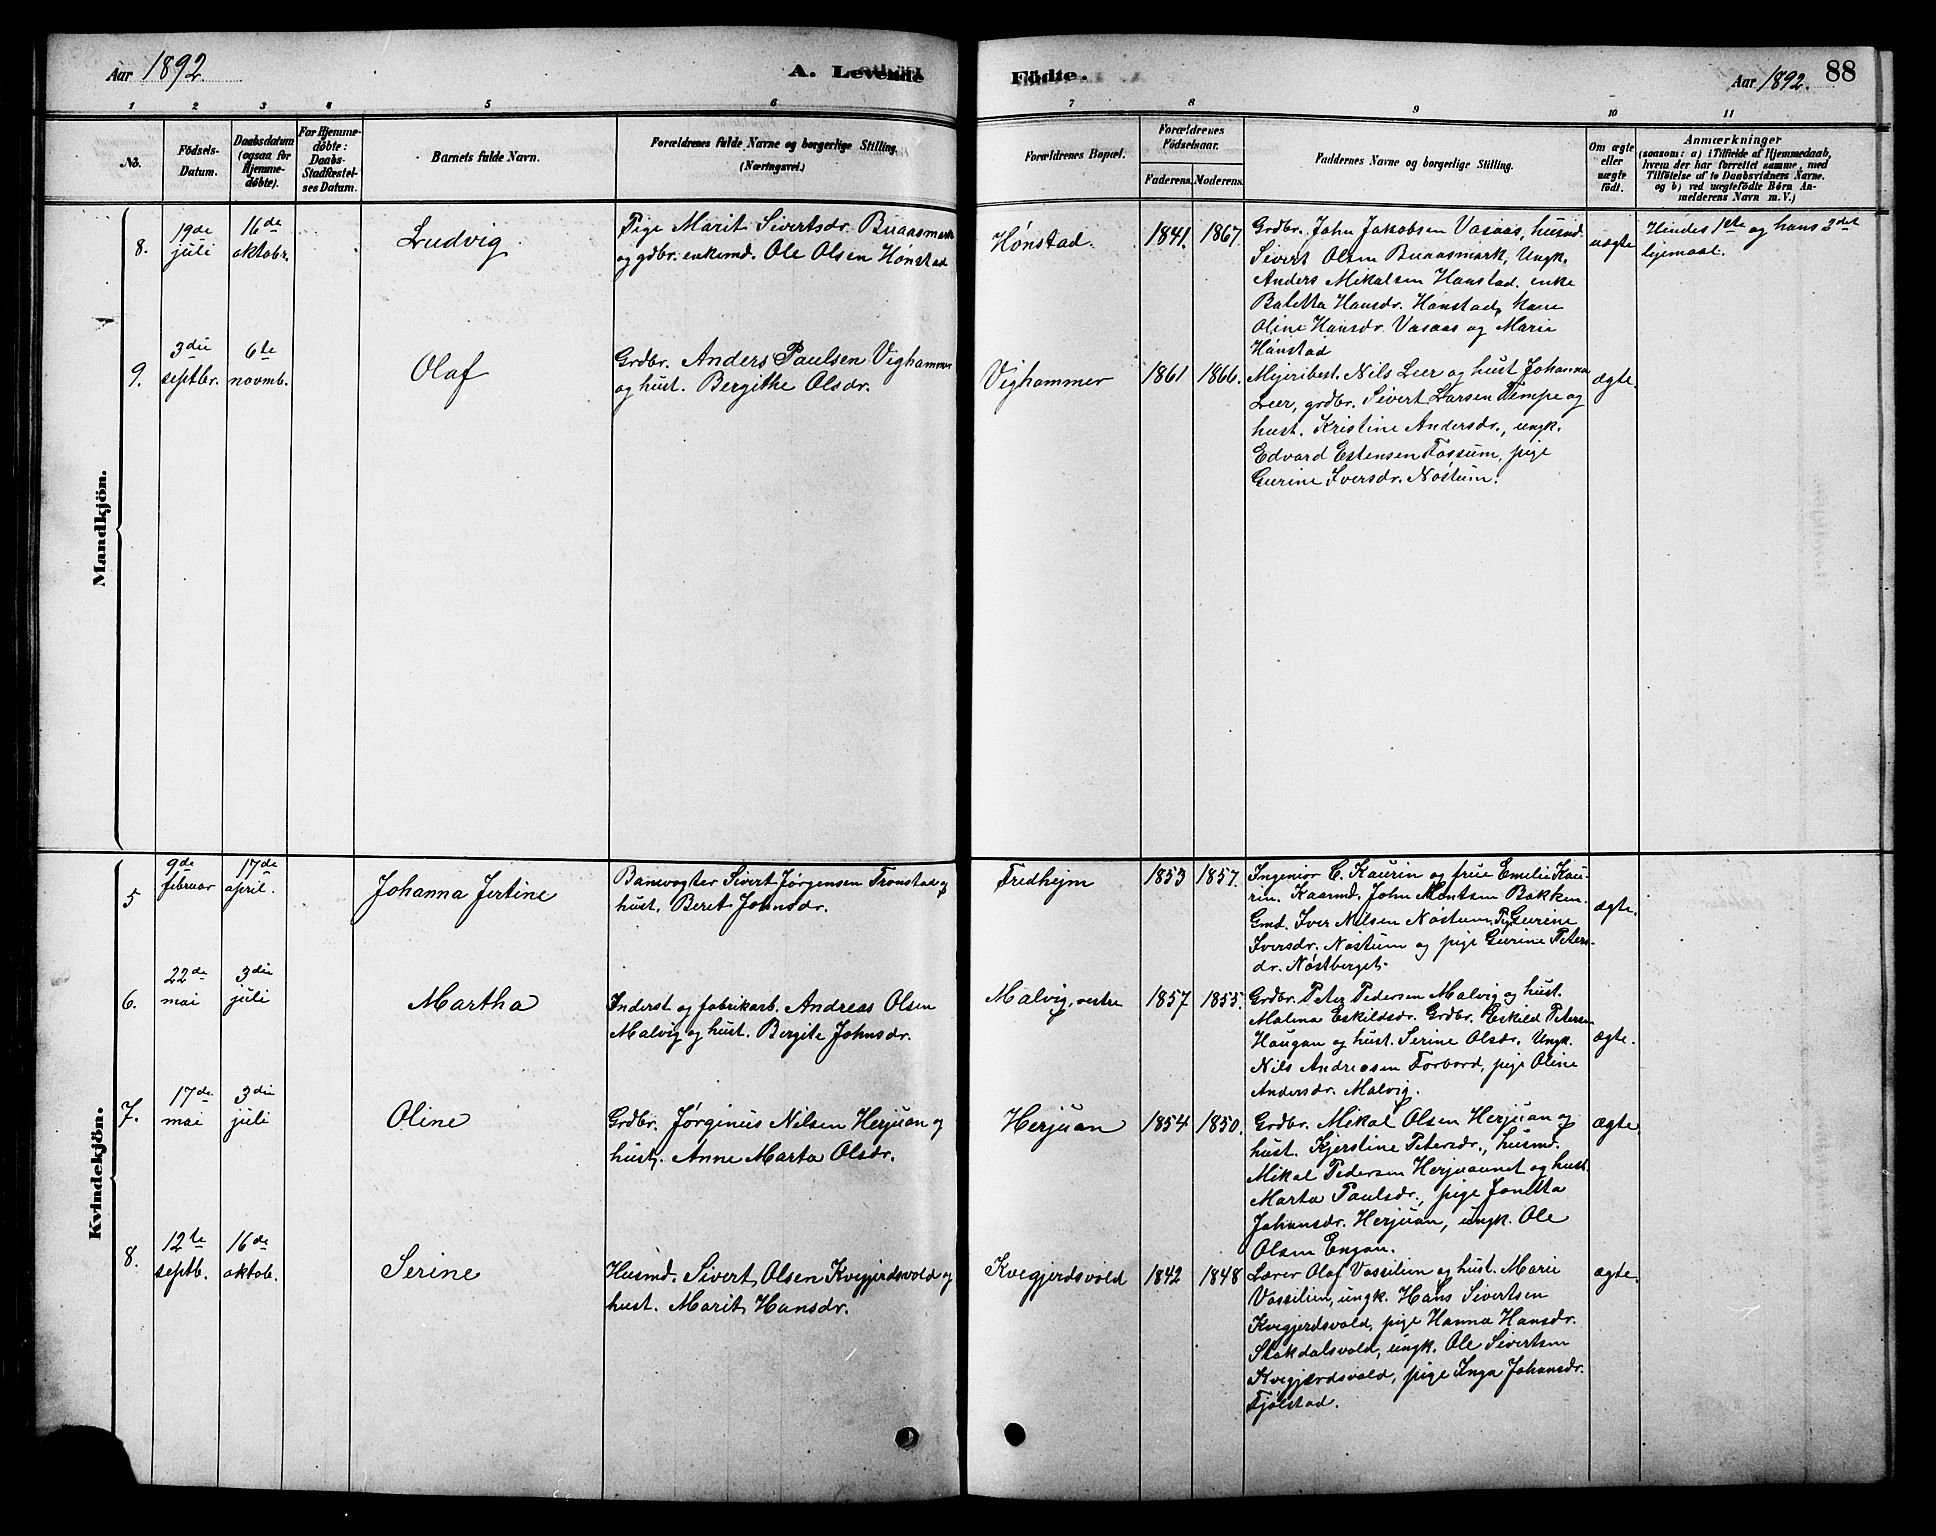 Aar 1892.
A. Levende
Födte.
Aar 1892.
88
1 2 3 4 5 6 7 8 9 10 11
No.
Födsels-
Datum.
Daabsdatum
(ogsaa for
Hjemme-
döbte).
For Hjemme-
döbte:
Daabs-
Stadfæstel-
ses Datum.
Barnets fulde Navn.
Forældrenes fulde Navne og borgerlige Stilling.
(Næringsvei.)
Forældrenes Bopæl.
Forældrenes
Födselsaar.
Faderens. Moderens.
Faddernes Navne og borgerlige Stilling.
Om ægte
eller
uægte
födt.
Anmærkninger
(saasom: a) i Tilfælde af Hjemmedaab,
hvem der har forrettet samme, med
Tilföielse af to Daabsvidners Navne.
og b) ved uægtefödte Börn An-
melderens Navn m. V.)
Mandkjön.
8.
19de
juli
16de
oktobr.
Ludvig
Pige Marit Sivertsdr. Buaasmark
og gdbr. enkemd. Ole Olsen Hønstad
Hønstad.
1841. 1867.
Grdbr. John Jakobsen Vasaas, husmd.
Sivert Olsen Buaasmark, Ungk.
Anders Mikalsen Hønstad. enke
Baletta Hansdr. Hønstad, kone
Oline Hansdr. Vasaas og Marie
Hønstad
uægte
Hendes 1ste og hans 3det
lejemaal.
9.
3die
septbr.
6te
novmb.
Olaf
Grdbr. Anders Paulsen Vighammer
og hust. Bergithe Olsdr.
Vighammer
1861 1866.
Mejeribest. Nils Leer og hust Johanna
Leer, grdbr. Sivert Larsen Tempe og
hust. Kristine Andersdr., ungk.
Edvard Estensen Fossum, pige
Gurine Iversdr. Nøstum.
ægte.
Kvindekjön.
5
9de
februar
17de
april.
Johanna Jertine
Banevogter Sivert Jørgensen Tronstad og
hust. Beret Johnsdr.
Fredhejm
1853 1857.
Ingeniør C. Kaurin og frue Emelie Kau-
rin. Kaarmd. John Montsen Bakken.
Gmd. Iver Nilsen Nøstum, Pig Gurine
Iversdr. Nøstum og pige Gurine Peters-
dr. Nøstberget.
ægte.
6.
22de
mai
3die
juli
Martha
Inderst og fabrikarb. Andreas Olsen
Malvig og hust. Bergite Johnsdr.
Malvig, vestre
1857 1855.
Grdbr. Peter Pedersen Malvig og hust.
Malena Eskildsdr. Grdbr. Eskild Petersen
Haugan og hust. Serine Olsdr. Ungk.
Nils Andreasen Forbord, pige Oline
Andersdr. Malvig.
ægte.
7.
17de
mai
3die
juli
Oline
Grdbr. Jørginus Nilsen Herjuan og
hust. Anne Marta Olsdr.
Herjuan
1854 1850.
Grdbr. Mikal Olsen Herjuan og
hust. Kjerstine Petersdr., husmd.
Mikal Pedersen Herjuaunet og hust.
Marta Paulsdr., pige Jonetta
Johansdr. Herjuan, ungk. Ole
Olsen Engan.
ægte
8.
12te
septb.
16de
oktob.
Serine
Husmd. Sivert Olsen Kvegjerdsvold og
hust. Marit Hansdr.
Kvegjerdsvold
1842 1848
Lærer Olaf Vassilien og hust. Marie
Vassilien, ungk. Hans Sivertsen
Kvegjerdsvold, pige Hanna Hansdr.
Stokdalsvold, ungk. Ole Sivertsen
Kvegjerdsvold, pige Inga Johansdr.
Fjølstad.
ægte.